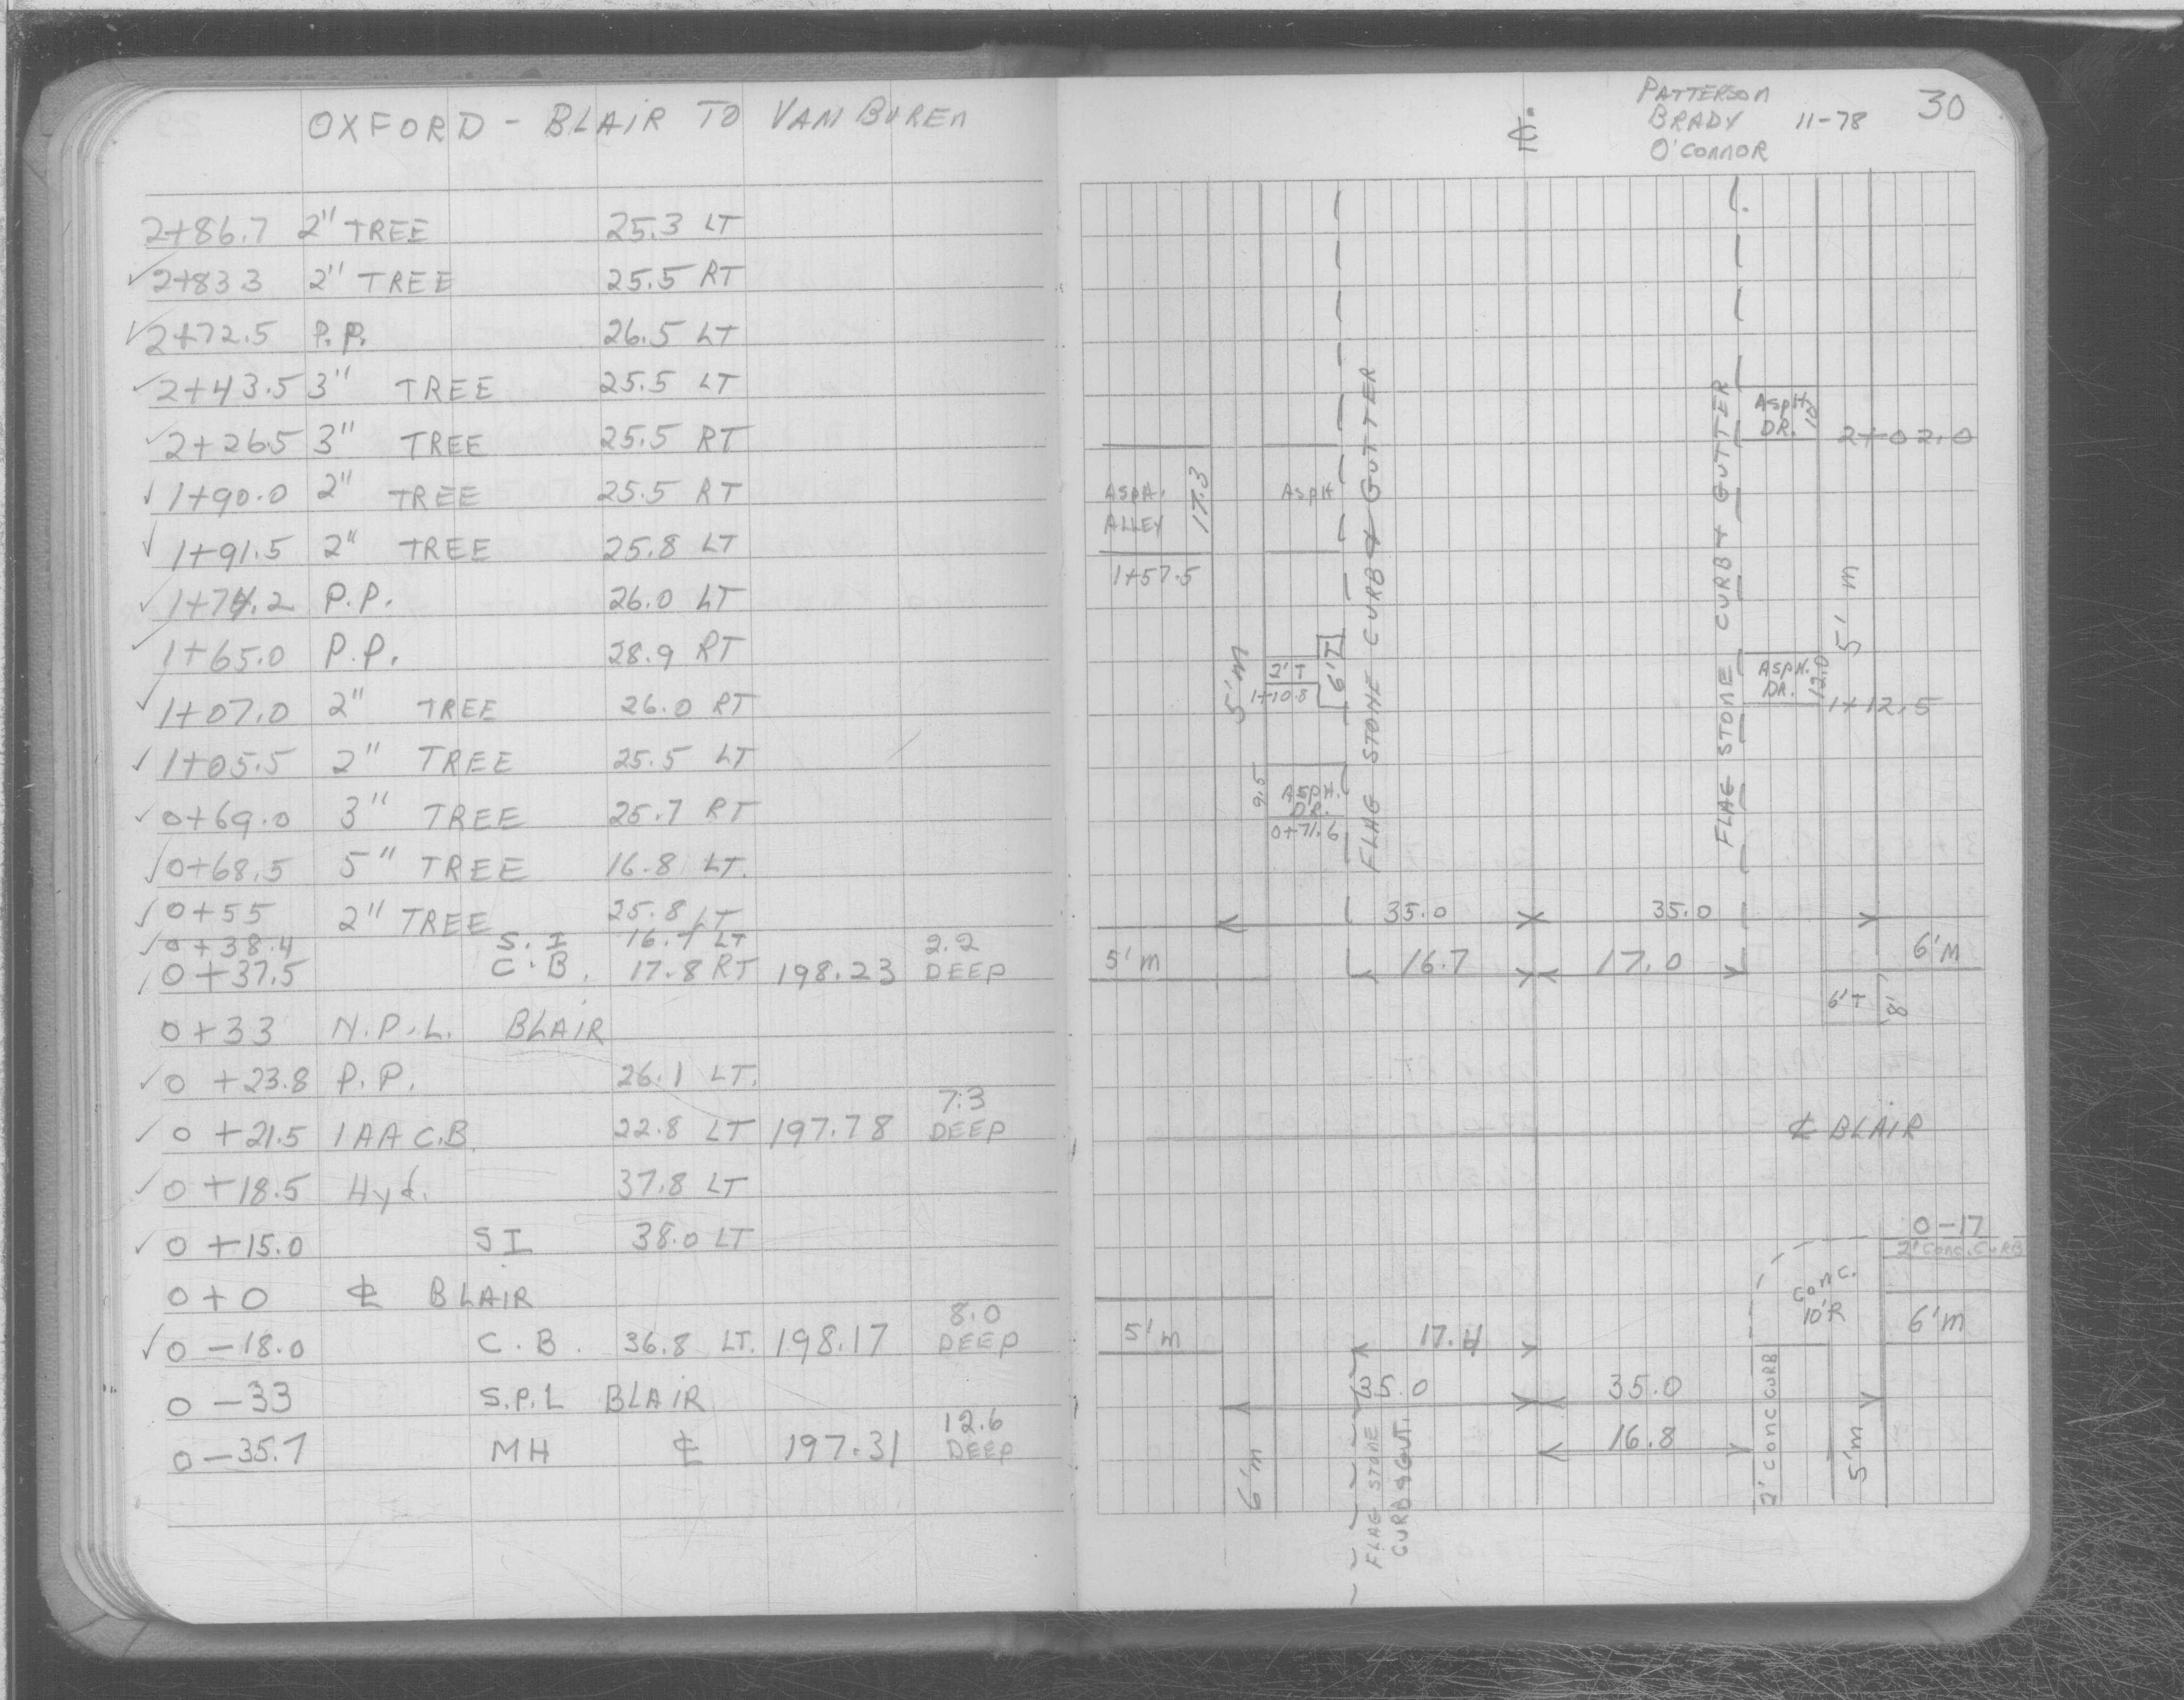 OXFORD - BLAIR TO VAN BUREN
2+86.7 2" TREE 25.3 LT
✓ 2+83.3 2" TREE 25.5 RT
✓ 2+72.5 P.P. 26.5 LT
✓ 2+43.5 3" TREE 25.5 LT
✓ 2+26.5 3" TREE 25.5 RT
✓ 1+90.0 2" TREE 25.5 RT
✓ 1+91.5 2" TREE 25.8 LT
✓ 1+74.2 P.P. 26.0 LT
✓ 1+65.0 P.P. 28.9 RT
✓ 1+07.0 2" TREE 26.0 RT
✓ 1+05.5 2" TREE 25.5 LT
✓ 0+69.0 3" TREE 25.7 RT
✓ 0+68.5 5" TREE 16.8 LT.
✓ 0+55 2" TREE 25.8 LT
✓ 0+38.4 S.I LT
✓ 0+37.5 C.B. 17.8 RT 198.23 2.2 DEEP
0+33 N.P.L. BLAIR
✓ 0+23.8 P.P. 26.1 LT.
✓ 0+21.5 1AA C.B. 22.8 LT 197.78 7.3 DEEP
✓ 0+18.5 Hyd. 37.8 LT
✓ 0+15.0 SI 38.0 LT
0+0 ℄ BLAIR
✓ 0-18.0 C.B. 36.8 LT. 198.17 8.0 DEEP
0-33 S.P.L BLAIR
0-35.7 MH ℄ 197.31 12.6 DEEP
℄
PATTERSON
BRADY 11-78
O'CONNOR
30
ASPH. DR. 10
2+02.0
ASPH. ALLEY 17.3
ASPH
1+57.5
FLAG STONE CURB & GUTTER
FLAG STONE CURB & GUTTER
5'm
5'm
2'T
1+10.8
6'T
ASPH. DR. 12.0
1+12.5
9.5
ASPH. DR.
0+71.6
35.0 35.0
5'm 16.7 17.0 6'M
6'T 8'
℄ BLAIR
0-17
2' CONC. CURB
CONC.
10'R
5'm 17.4 6'm
35.0 35.0
16.8
6'm
FLAG STONE
CURB & GUT.
2' CONC CURB
5'm